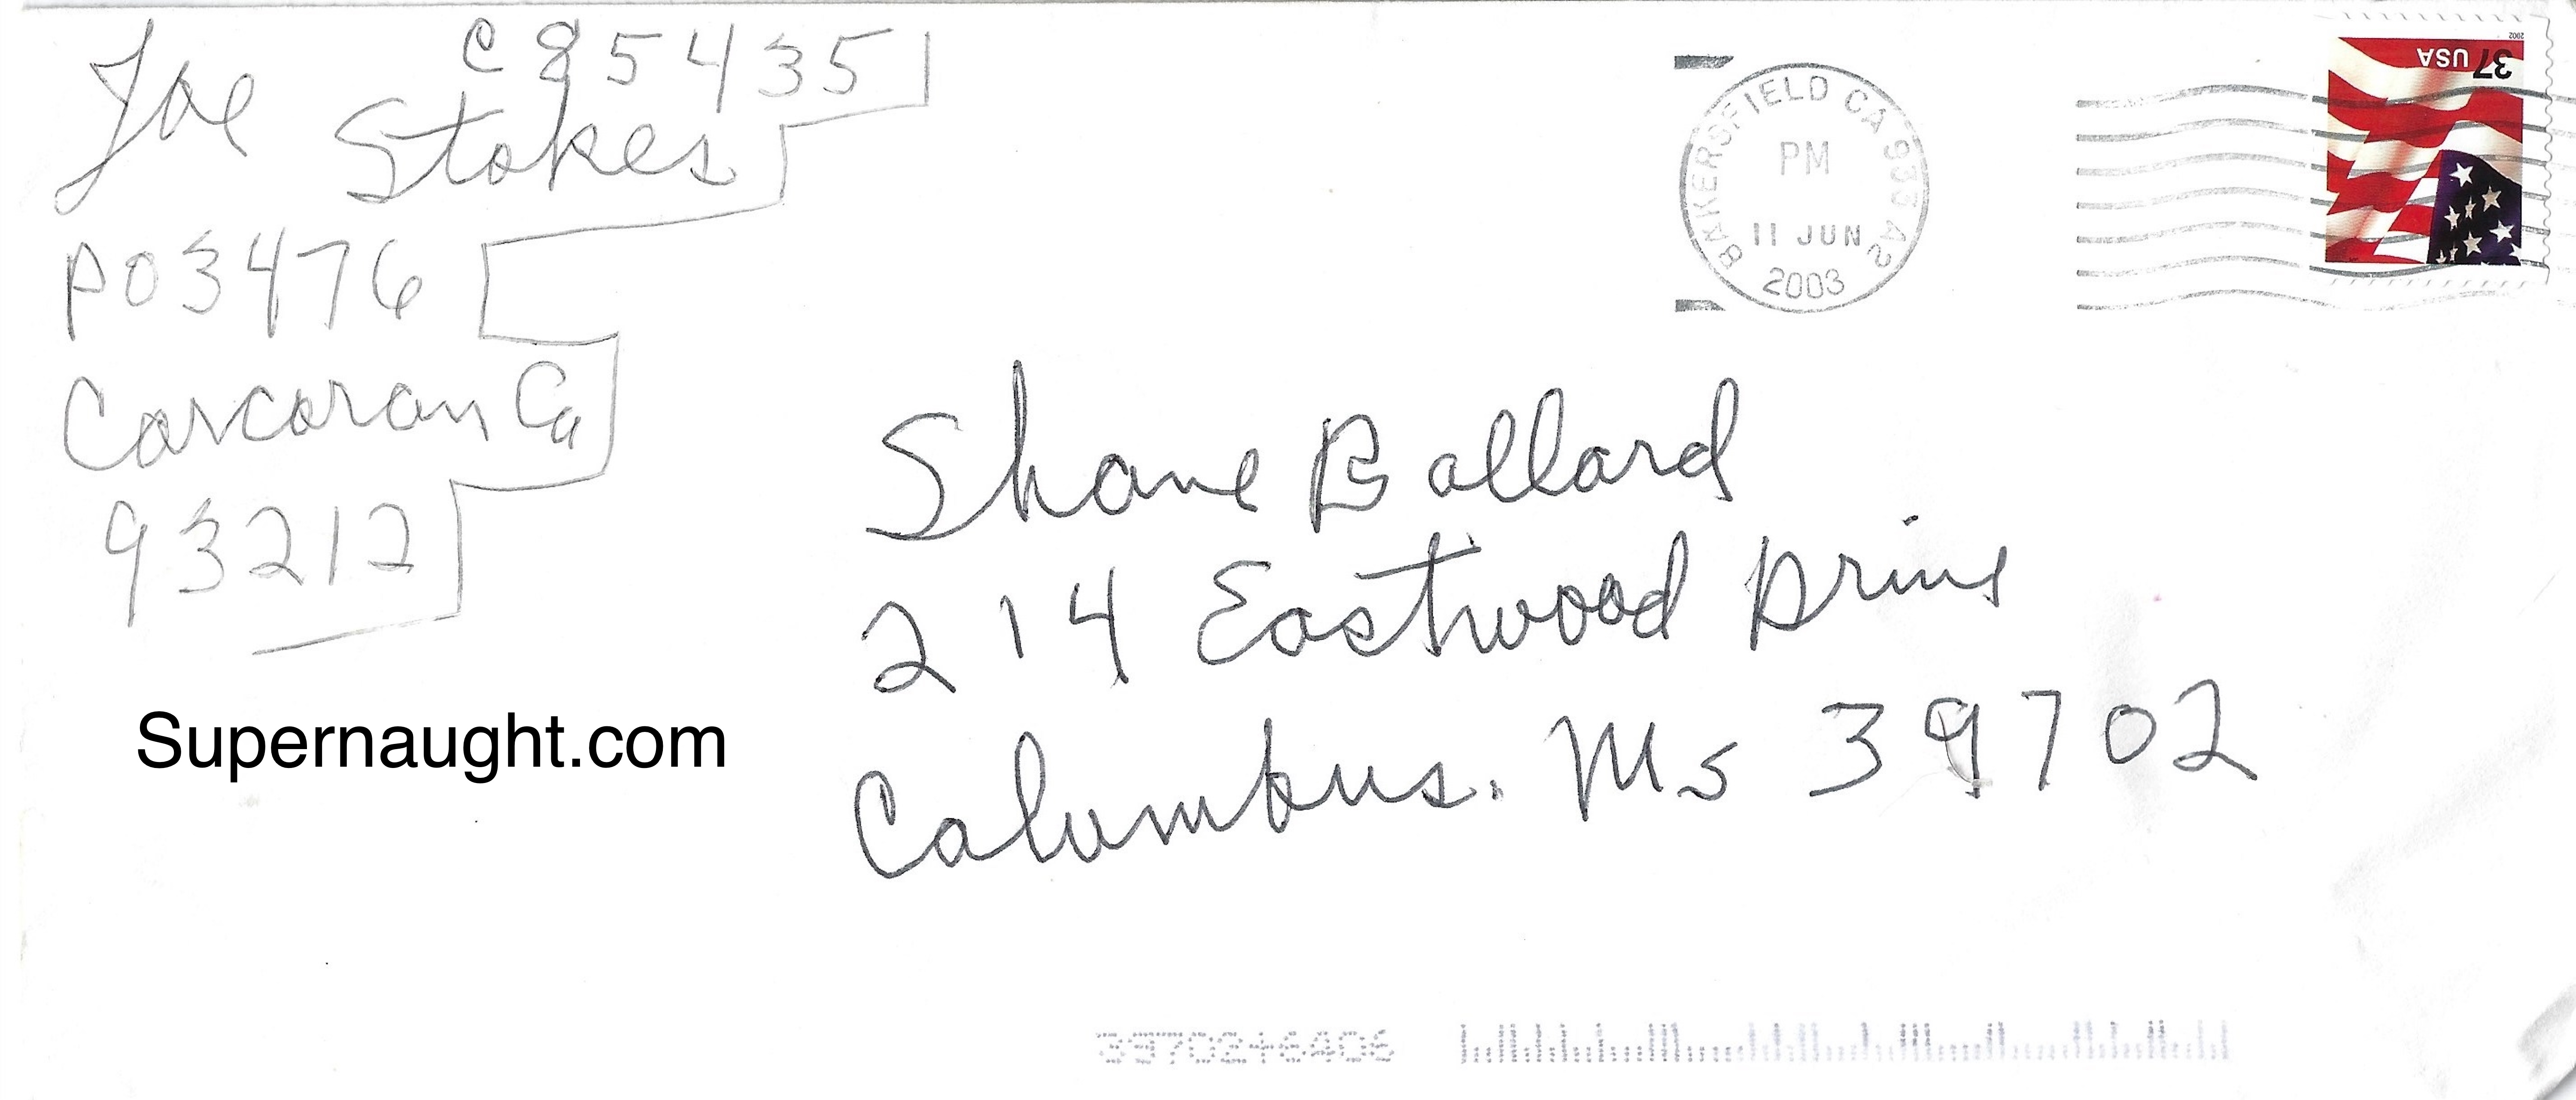 Joe C85435
Stokes
PO3476
Corcoran Ca
93212
BAKERSFIELD CA
PM
11 JUN
2003
2002
37 USA
Shane Ballard
214 Eastwood Drive
Columbus. Ms 39702
Supernaught.com
39702+6406